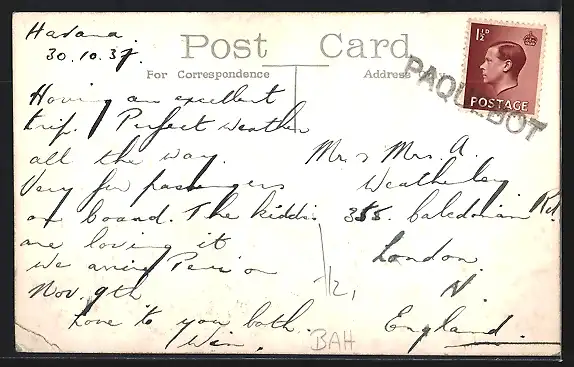 Havana.
30.10.37.
Post Card
For Correspondence
Address
Having an excellent
trip. Perfect weather
all the way.
Very few passengers
on board. The kiddis.
are loving it
We arrive
Nov. 9th
Love to you both.
Win.
Mr & Mrs. A.
Weatherley
355. Caledonian Rd.
London
N.
England.
1½D
POSTAGE
PAQUEBOT
BAH